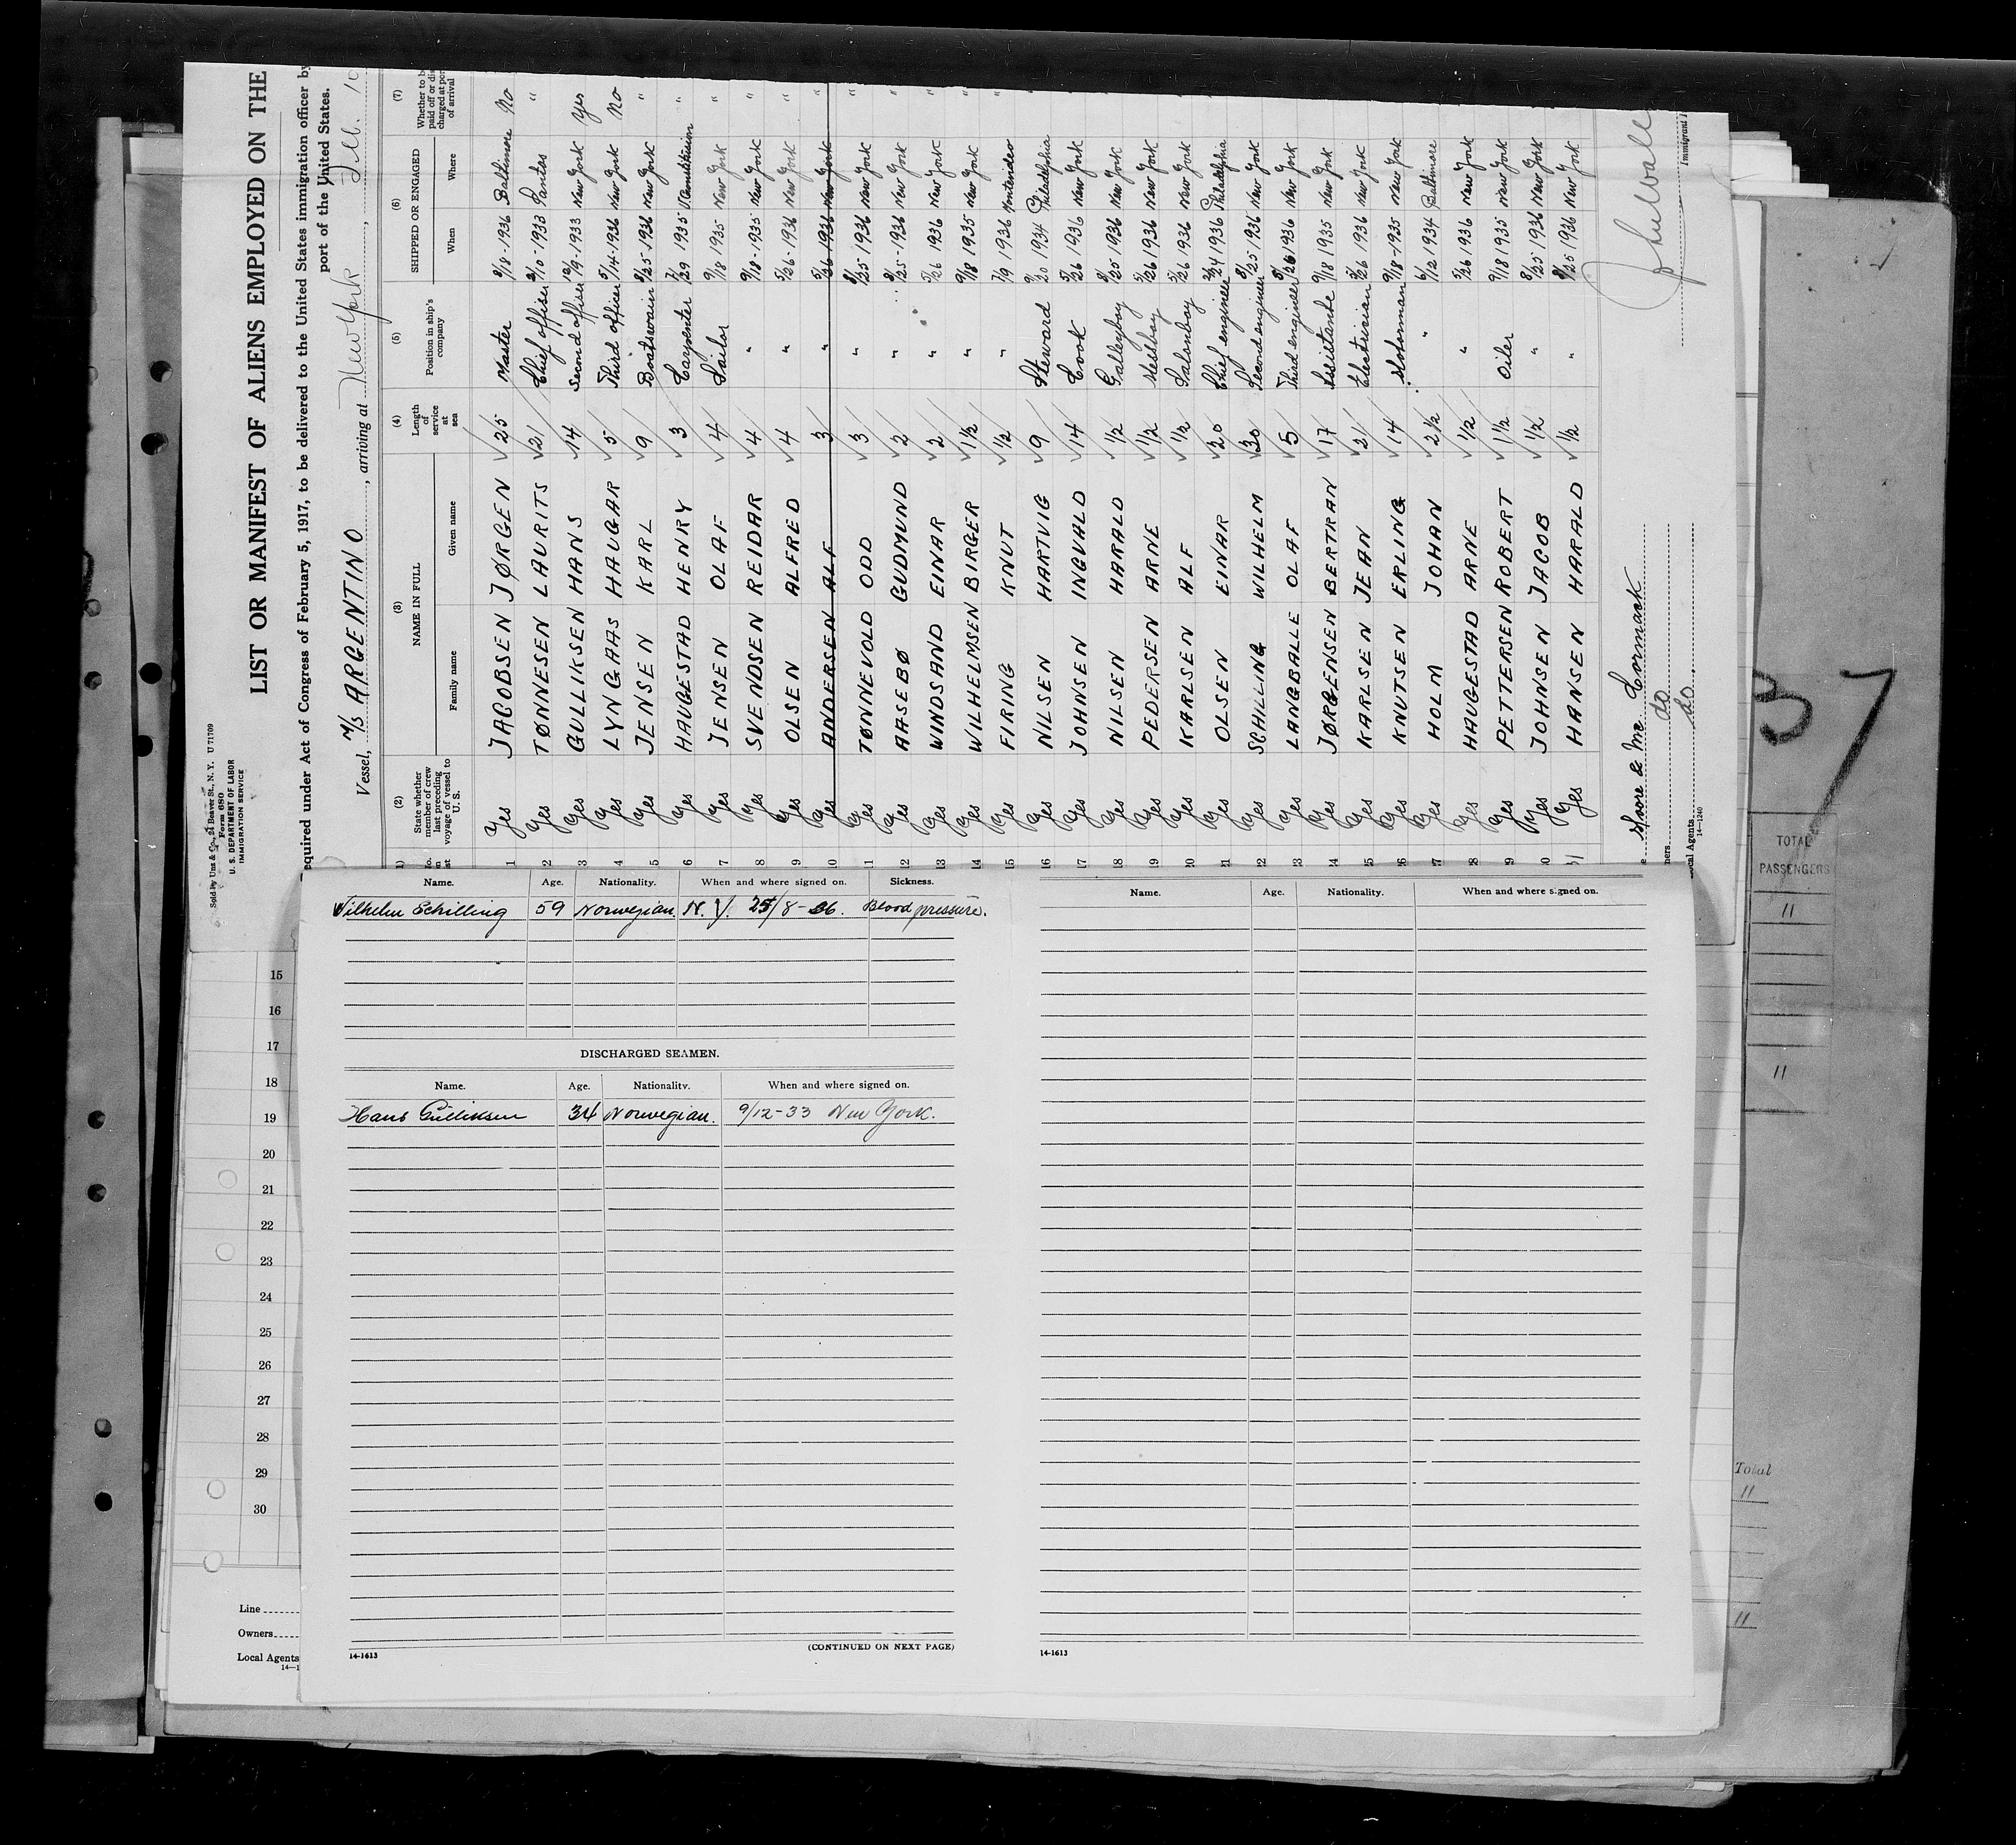 Sold by Unz & Co., 24 Beaver St., N. Y. U 71709
Form 680
U. S. DEPARTMENT OF LABOR
IMMIGRATION SERVICE
LIST OR MANIFEST OF ALIENS EMPLOYED ON THE
equired under Act of Congress of February 5, 1917, to be delivered to the United States immigration officer by
port of the United States.
Vessel, M/S ARGENTINO, arriving at New York,
(2) (3) (4) (5) (6) (7)
State whether member of crew last preceding voyage of vessel to U. S. NAME IN FULL Length of service at sea Position in ship's company SHIPPED OR ENGAGED Whether to be paid off or dis charged at port of arrival
Family name Given name When Where
1 Yes JACOBSEN JØRGEN √25 Master 9/18-1936 Baltimore No
2 Yes TØNNESEN LAURITS √21 Chief officer 2/10-1933 Santos "
3 Yes GULLIKSEN HANS √14 Second officer 12/9-1933 New York Yes
4 Yes LYNGAAS HAUGAR √5 Third officer 5/14-1936 New York No
5 Yes JENSEN KARL √9 Boatswain 8/25-1936 New York "
6 Yes HAUGESTAD HENRY √3 Carpenter 7/29 1935 "
7 Yes JENSEN OLAF √4 Sailor 9/18 1935 New York "
8 Yes SVENDSEN REIDAR √4 " 9/18-1935 New York "
9 Yes OLSEN ALFRED √4 " 5/26-1936 New York "
10 Yes ANDERSEN ALF 3 " 5/26 1936 New York "
11 Yes TØNNEVOLD ODD √3 " 8/25 1936 New York "
12 Yes AASEBØ GUDMUND √2 " 8/25-1936 New York "
13 Yes WINDSAND EINAR √2 " 5/26 1936 New York "
14 Yes WILHELMSEN BIRGER √1½ " 9/18 1935 New York "
15 Yes FIRING KNUT √½ " 7/9 1936 Montevideo "
16 Yes NILSEN HARTVIG √9 Steward 9/20 1934 Philadelphia "
17 Yes JOHNSEN INGVALD √14 Cook 5/26 1936 New York "
18 Yes NILSEN HARALD ½ Galleyboy 8/25 1936 New York
19 Yes PEDERSEN ARNE √1½ Messboy 5/26 1936 New York
20 Yes KARLSEN ALF √1½ Salonboy 5/26 1936 New York
21 Yes OLSEN EINAR √20 Chief engineer 3/24 1936 Philadelphia
22 Yes SCHILLING WILHELM √30 Second engineer 8/25 1936 New York
23 Yes LANGBALLE OLAF √5 Third engineer 5/26 1936 New York
Yes JØRGENSEN BERTRAN √17 Assistante 9/18 1935 New York
25 Yes KARLSEN JEAN √21 Electrician 5/26 1936 New York
26 Yes KNUTSEN ERLING √14 Motorman 9/18-1935 New York
27 Yes HOLM JOHAN √2½ " 6/12 1934 Baltimore
28 Yes HAUGESTAD ARNE √½ " 5/26 1936 New York
9 Yes PETTERSEN ROBERT √1½ Oiler 9/18 1935 New York
30 Yes JOHNSEN JACOB √1½ " 8/25 1936 New York
31 Yes HANSEN HARALD √½ " 8/25 1936 New York
Moore & Mc. Cormack
ners do
ocal Agents do.
14-1240
Immigrant I
37
TOTAL
PASSENGERS
11
11
Total
11
11
Name. Age. Nationality. When and where signed on. Sickness.
Wilhelm Schilling 59 Norwegian. N. Y. 25/8-36. Blood pressure.
DISCHARGED SEAMEN.
Name. Age. Nationality. When and where signed on.
Hans Gulliksen 34 Norwegian. 9/12-33 New York.
(CONTINUED ON NEXT PAGE)
14-1613
Name. Age. Nationality. When and where signed on.
14-1613
15
16
17
18
19
20
21
22
23
24
25
26
27
28
29
30
Line
Owners
Local Agents
14-1